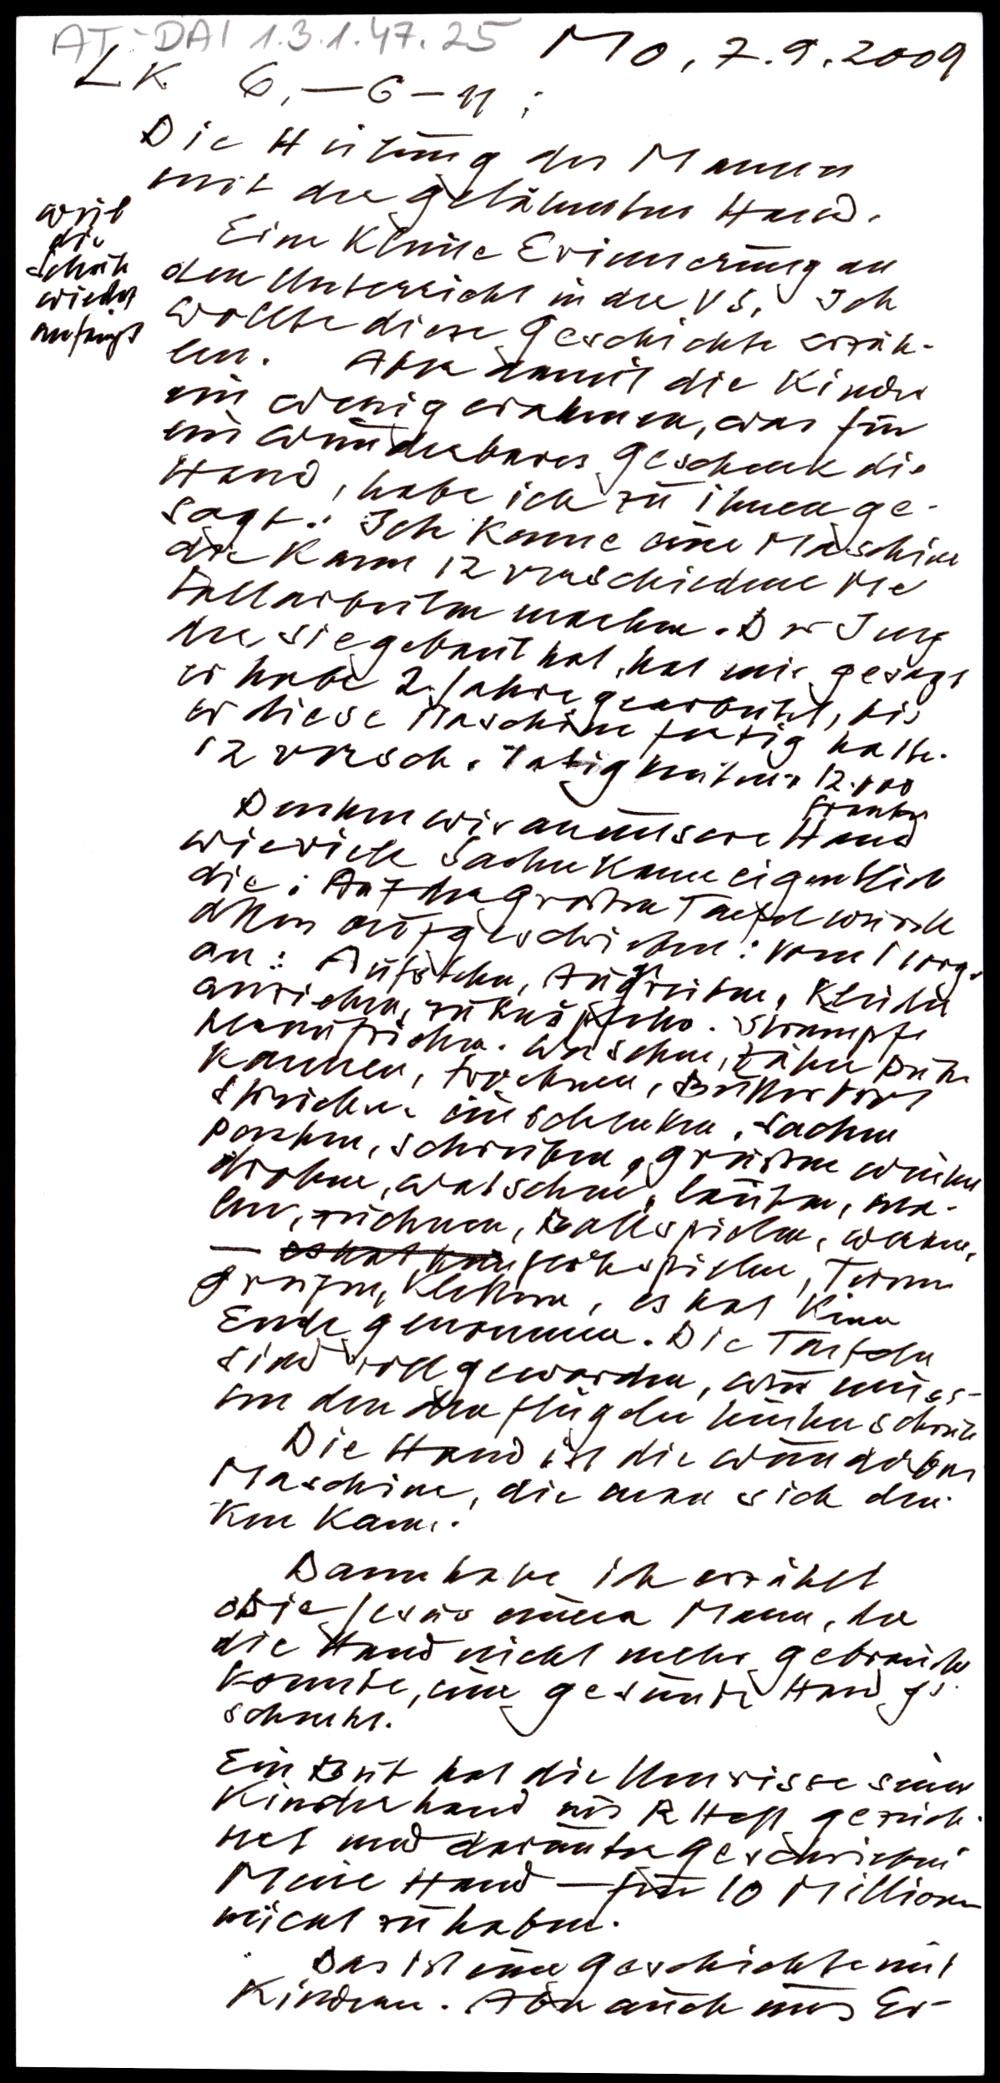 AT-DAI 1.3.1.47.25
Mo, 7.9.2009
LK 6,-6-11:
Die Heilung des Mannes
mit der gelähmten Hand.
weil
die
Schule
wieder
anfängt
Eine kleine Erinnerung an
den Unterricht in der VS. Ich
wollte diese Geschichte erzäh-
len. Aber damit die Kinder
ein wenig erahnen, was für
ein wunderbares Geschenk die
Hand, habe ich zu ihnen ge-
sagt: Ich kenne eine Maschine
die kann 12 verschiedene Me
tallarbeiten machen. Der Ing
der sie gebaut hat, hat mir gesagt
er habe 2 Jahre gearbeitet, bis
er diese Maschine fertig hatte.
12 versch. Tätigkeiten. 12.000
Franken
Denken wir an unsere Hand
wieviele Sachen kann eigentlich
die: Auf der großen Tafel wurde
alles aufgeschrieben: vom Morg.
an: Aufstehn, Kleider
anziehen, zuknöpfen. Strümpfe
hinaufziehn. waschen, Zähne putz
kämmen, trocknen, Butterbrot
streichen einschenken, Sachen
packen, schreiben, grüßen winken
drohen, watschen, läuten, ma-
len, zeichnen, Ballspielen,
— es hat kein spielen, Turnen
greifen, klettern, es hat kein
Ende genommen. Die Tafeln
sind voll geworden, wir muss-
ten den den Flügeln hinten schreib
Die Hand ist die wunderbar
Maschine, die man sich den-
ken kann.
Dann habe ich erzählt
wie Jesus einem Mann, der
die Hand nicht mehr gebrauch
konnte, eine gesunde Hand ge-
schenkt.
Ein Bub hat die Umrisse seiner
Kinderhand ins R Heft gezeich-
net und darunter geschrieben
Meine Hand — für 10 Millionen
nicht zu haben.
Das ist eine Geschichte mit
Kindern. Aber auch uns Er-